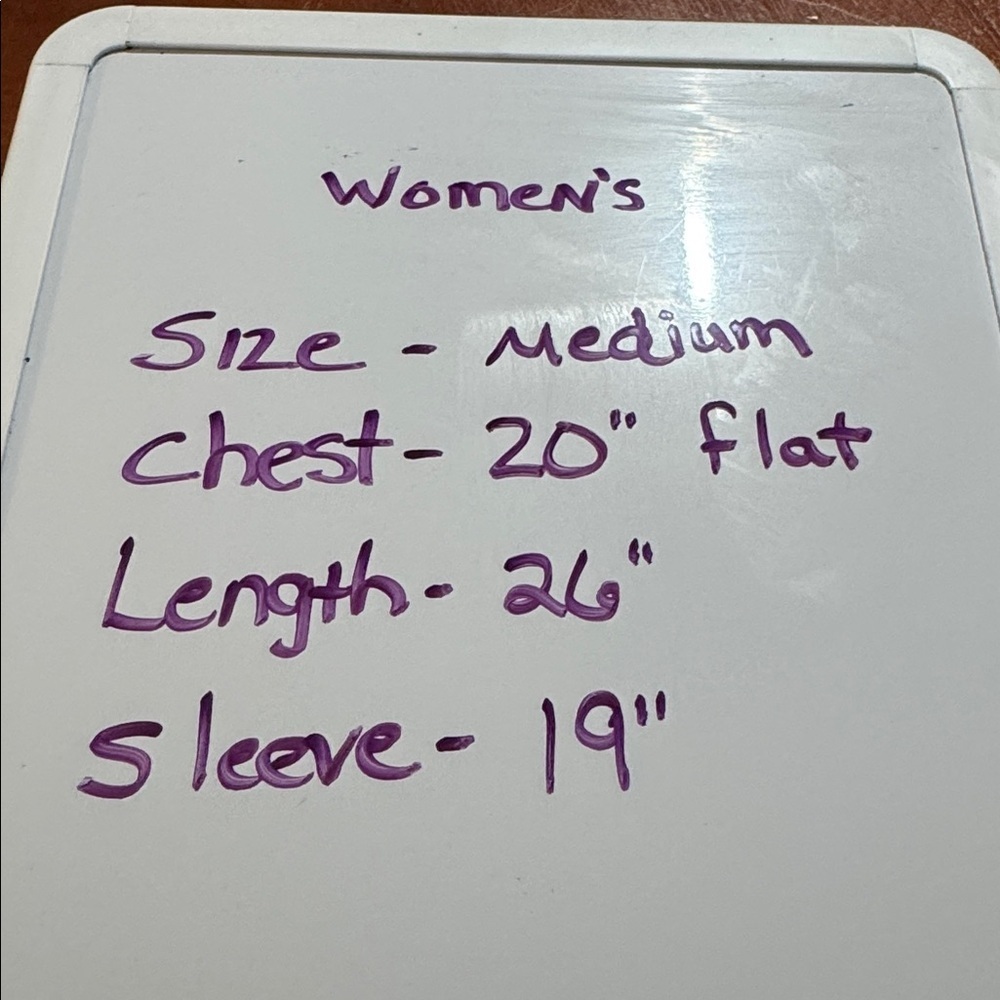 Women's
Size - Medium
Chest - 20" flat
Length - 26"
Sleeve - 19"